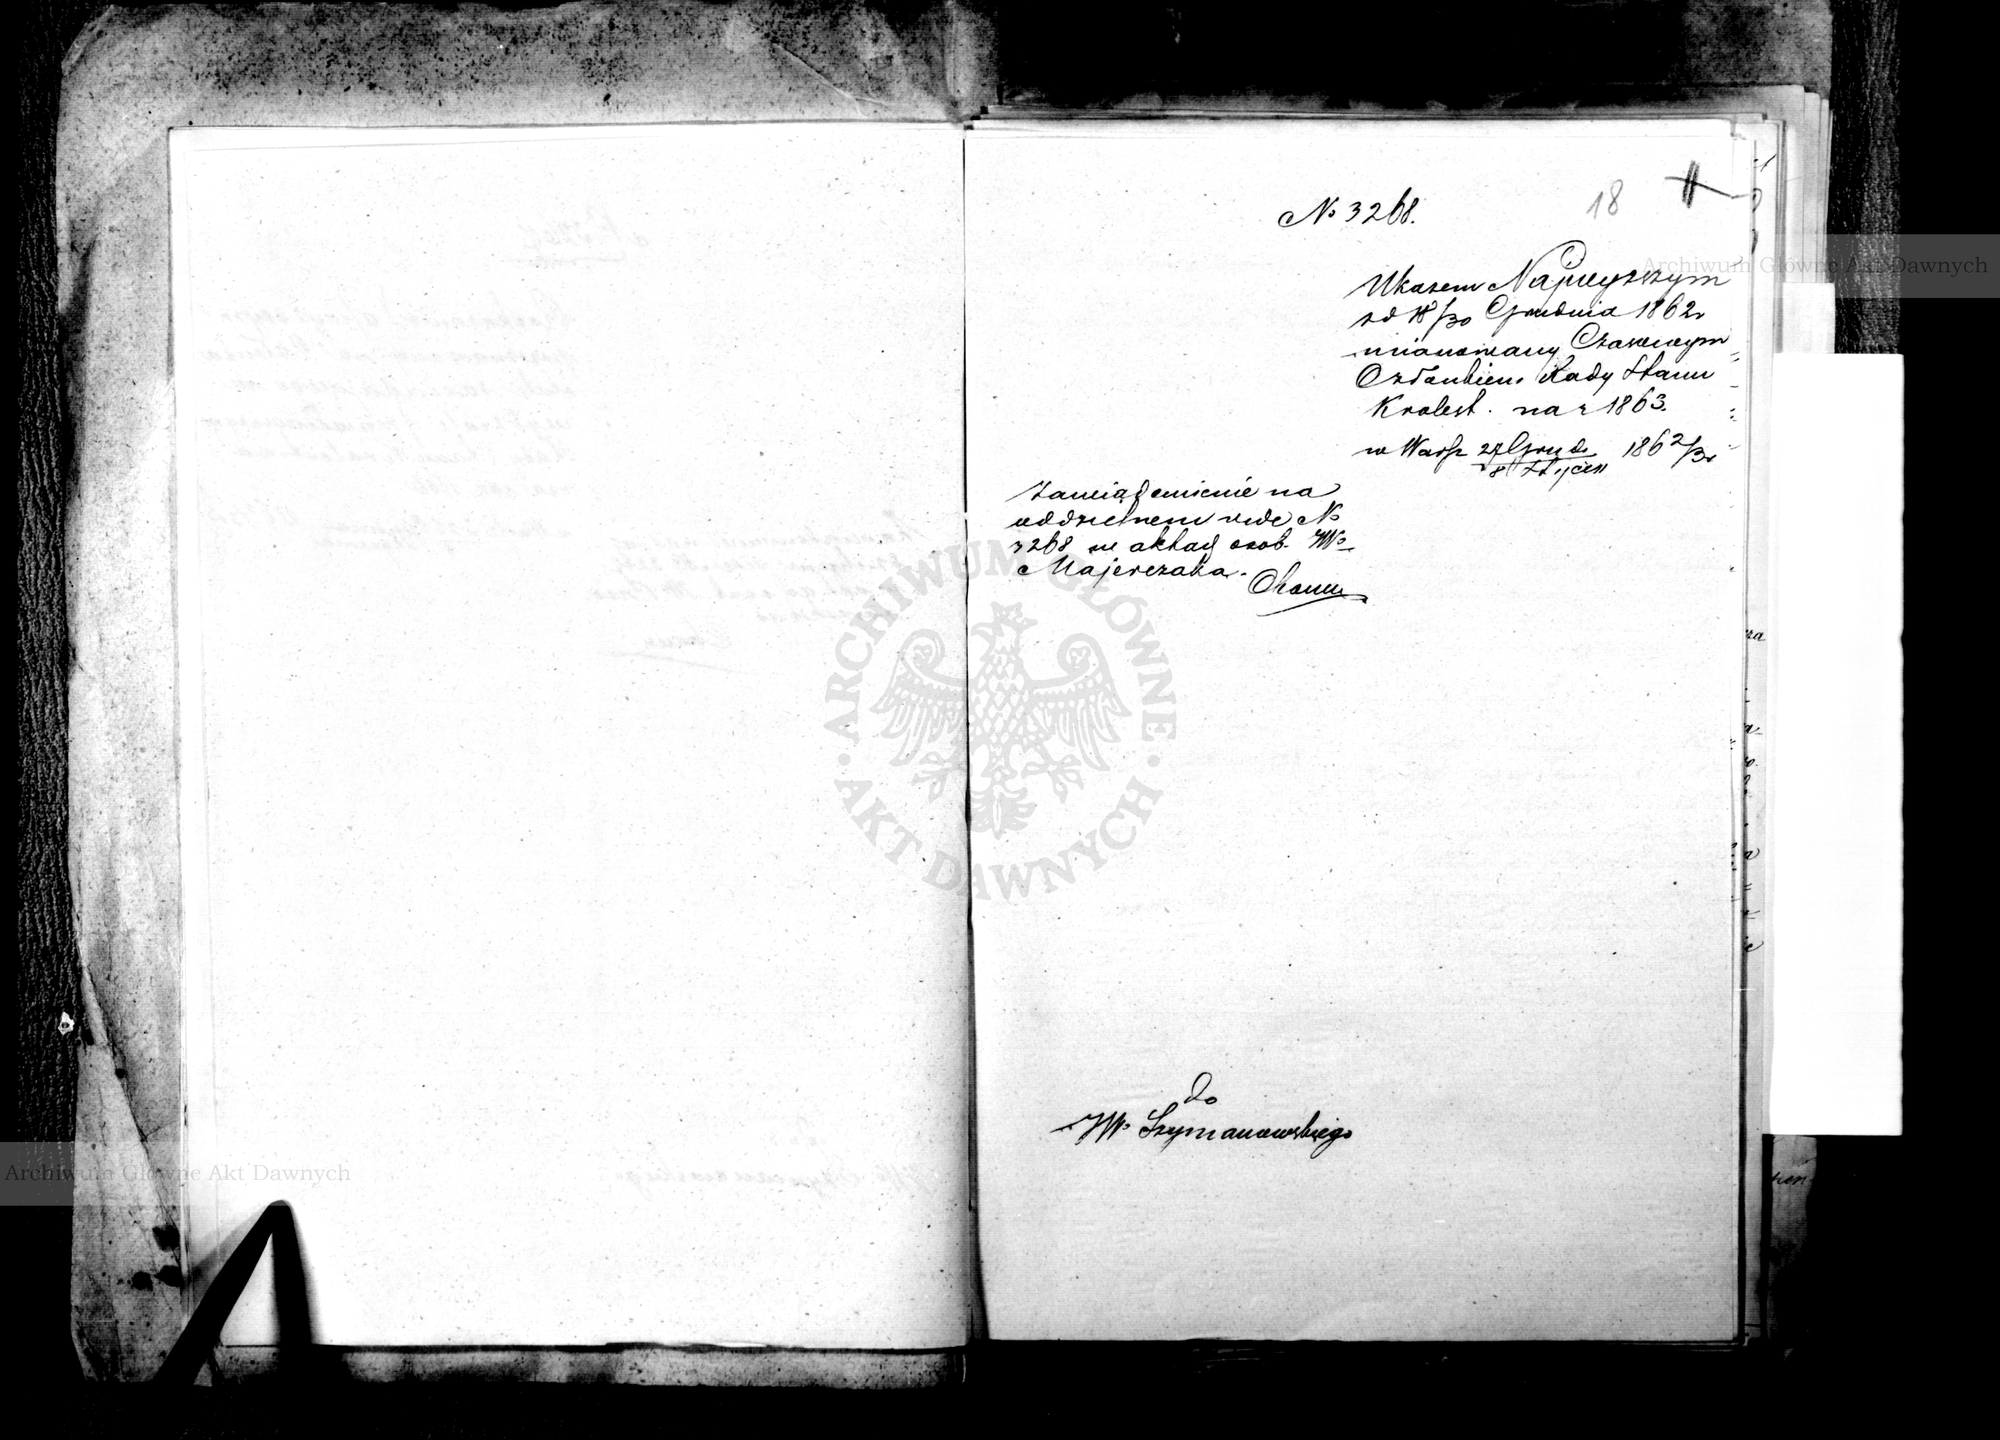 № 3268.
18
Ukazem Najwyższym
od 18/30 Grudnia 1862 r
mianowany Czasowym
Członkiem Rady Stanu
Królest. na r 1863.
w Warsz 27 Grud. / 8 Stycz 1862/3 r
Zawiadomienie na
oddzielnem vide №
3268 w aktach osob. JW°
Majerczaka.
do
JW° Szymanowskiego
ARCHIWUM GŁÓWNE
AKT DAWNYCH
Archiwum Główne Akt Dawnych
Archiwum Główne Akt Dawnych